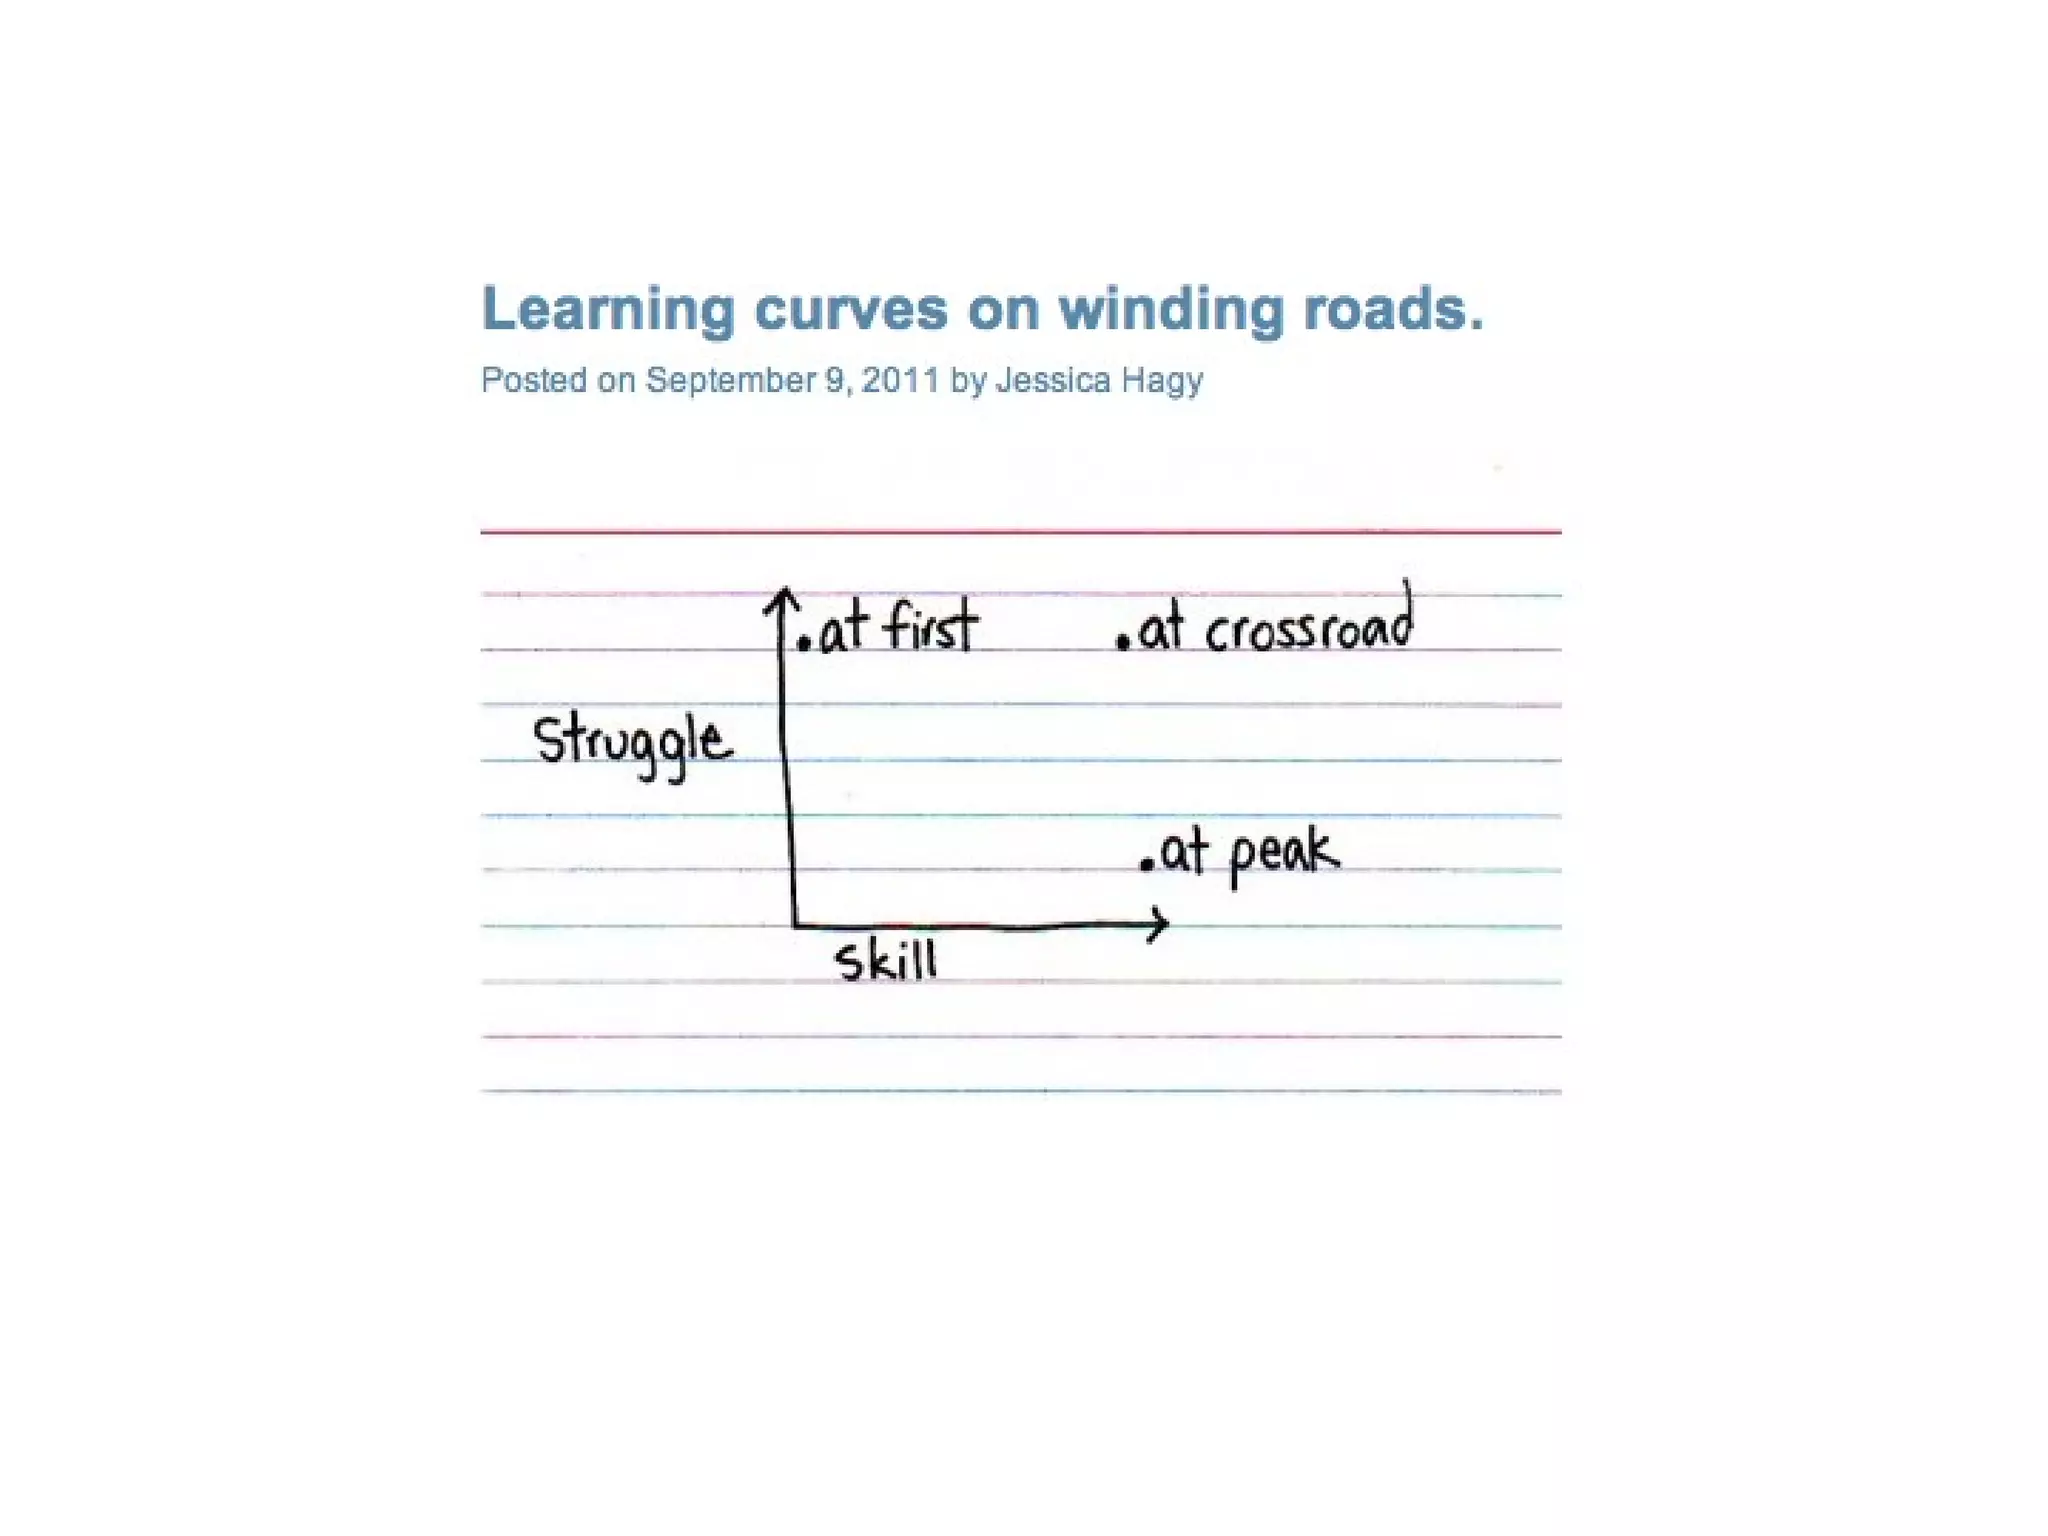 Learning curves on winding roads.
Posted on September 9, 2011 by Jessica Hagy
.at first .at crossroad
Struggle
.at peak
skill